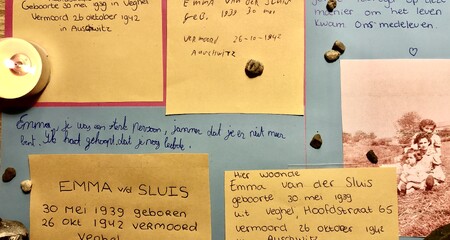 Geboorte 30 mei 1939 in Veghel
Vermoord 26 oktober 1942
in Auschwitz
EMMA VAN DER SLUIS
GEB. 1939 30 mei
VERMOORD 26-10-1942
AUSCHWITZ
manier om het leven
kwam. Ons medeleven.
Emma, je was een sterk persoon, jammer dat je er niet meer
bent. Ik had gehoopt dat je nog leefde.
EMMA v/d SLUIS
30 MEI 1939 geboren
26 OKT 1942 VERMOORD
Veghel
Hier woonde
Emma van der Sluis
geboorte 30 mei 1939
uit Veghel, Hoofdstraat 65
vermoord 26 oktober 1942
in Auschwitz